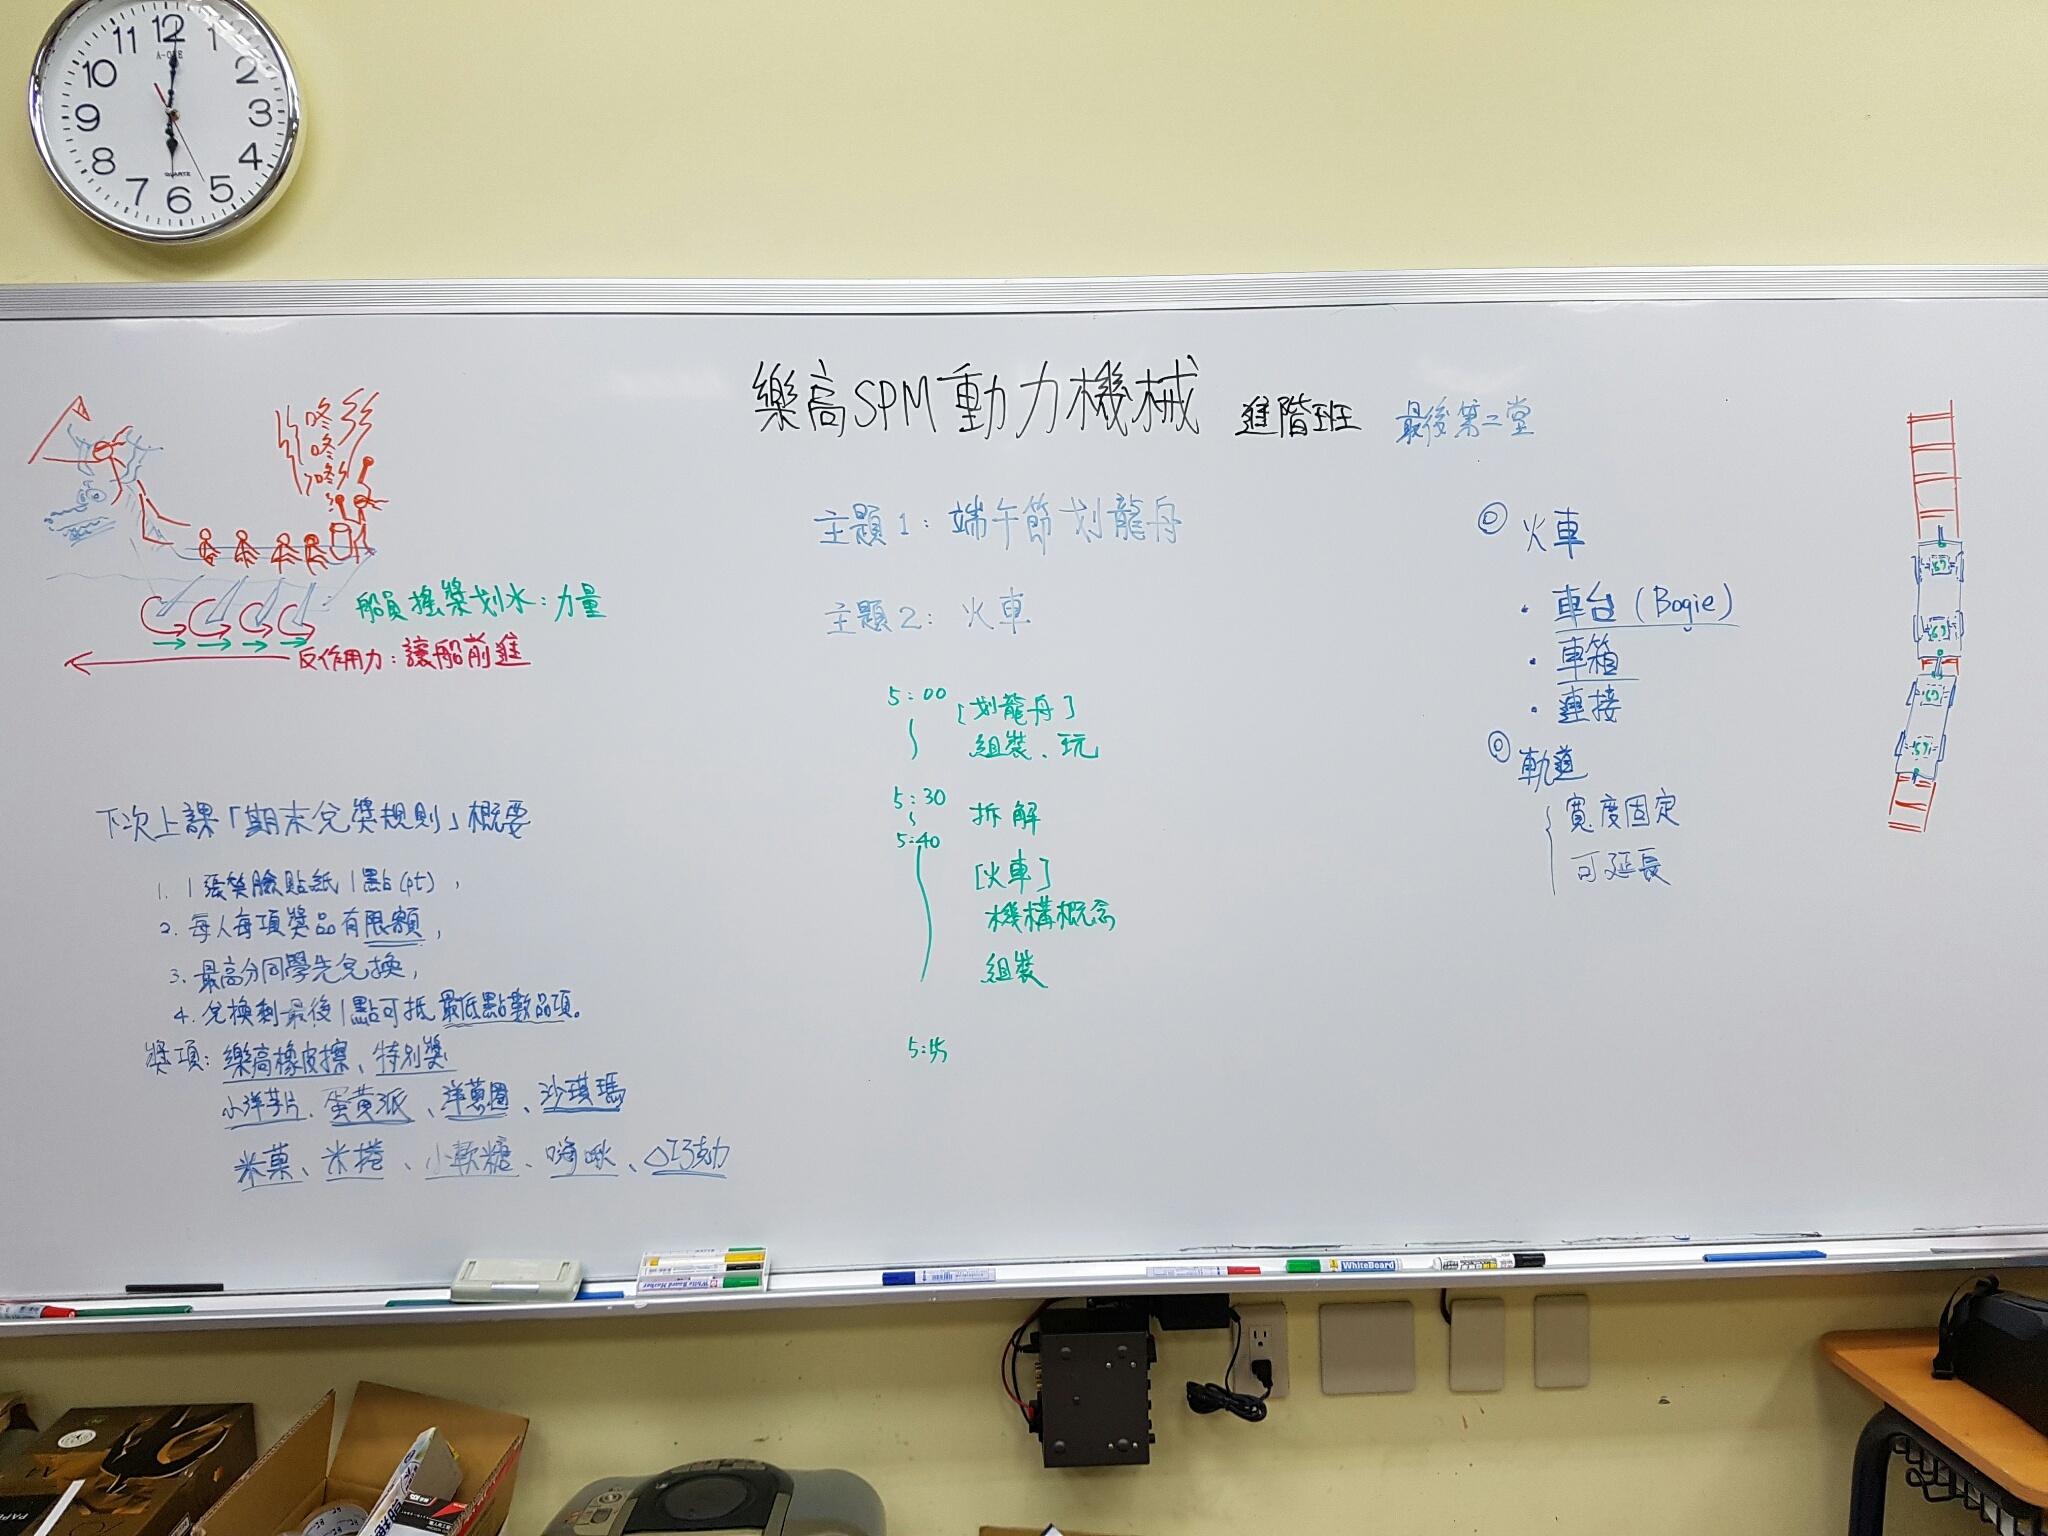 11 12 1
10 2
9 3
8 4
7 6 5
A-ONE
QUARTZ
樂高SPM動力機械 進階班 最後第二堂
咚
咚
咚
船員搖槳划水：力量
反作用力：讓船前進
下次上課「期末兌獎規則」概要
1. 1張笑臉貼紙1點(pt),
2. 每人每項獎品有限額,
3. 最高分同學先兌換,
4. 兌換剩最後1點可抵最低點數品項。
獎項：樂高橡皮擦、特別獎
小洋芋片、蛋黃派、洋蔥圈、沙琪瑪
米菓、米捲、小軟糖、嗨啾、巧克力
主題1：端午節划龍舟
主題2：火車
5:00 [划龍舟]
組裝、玩
5:30 拆解
5:40
[火車]
機構概念
組裝
5:55
◎ 火車
・車台(Bogie)
・車箱
・連接
◎ 軌道
寬度固定
可延長
White Board Marker
WhiteBoard